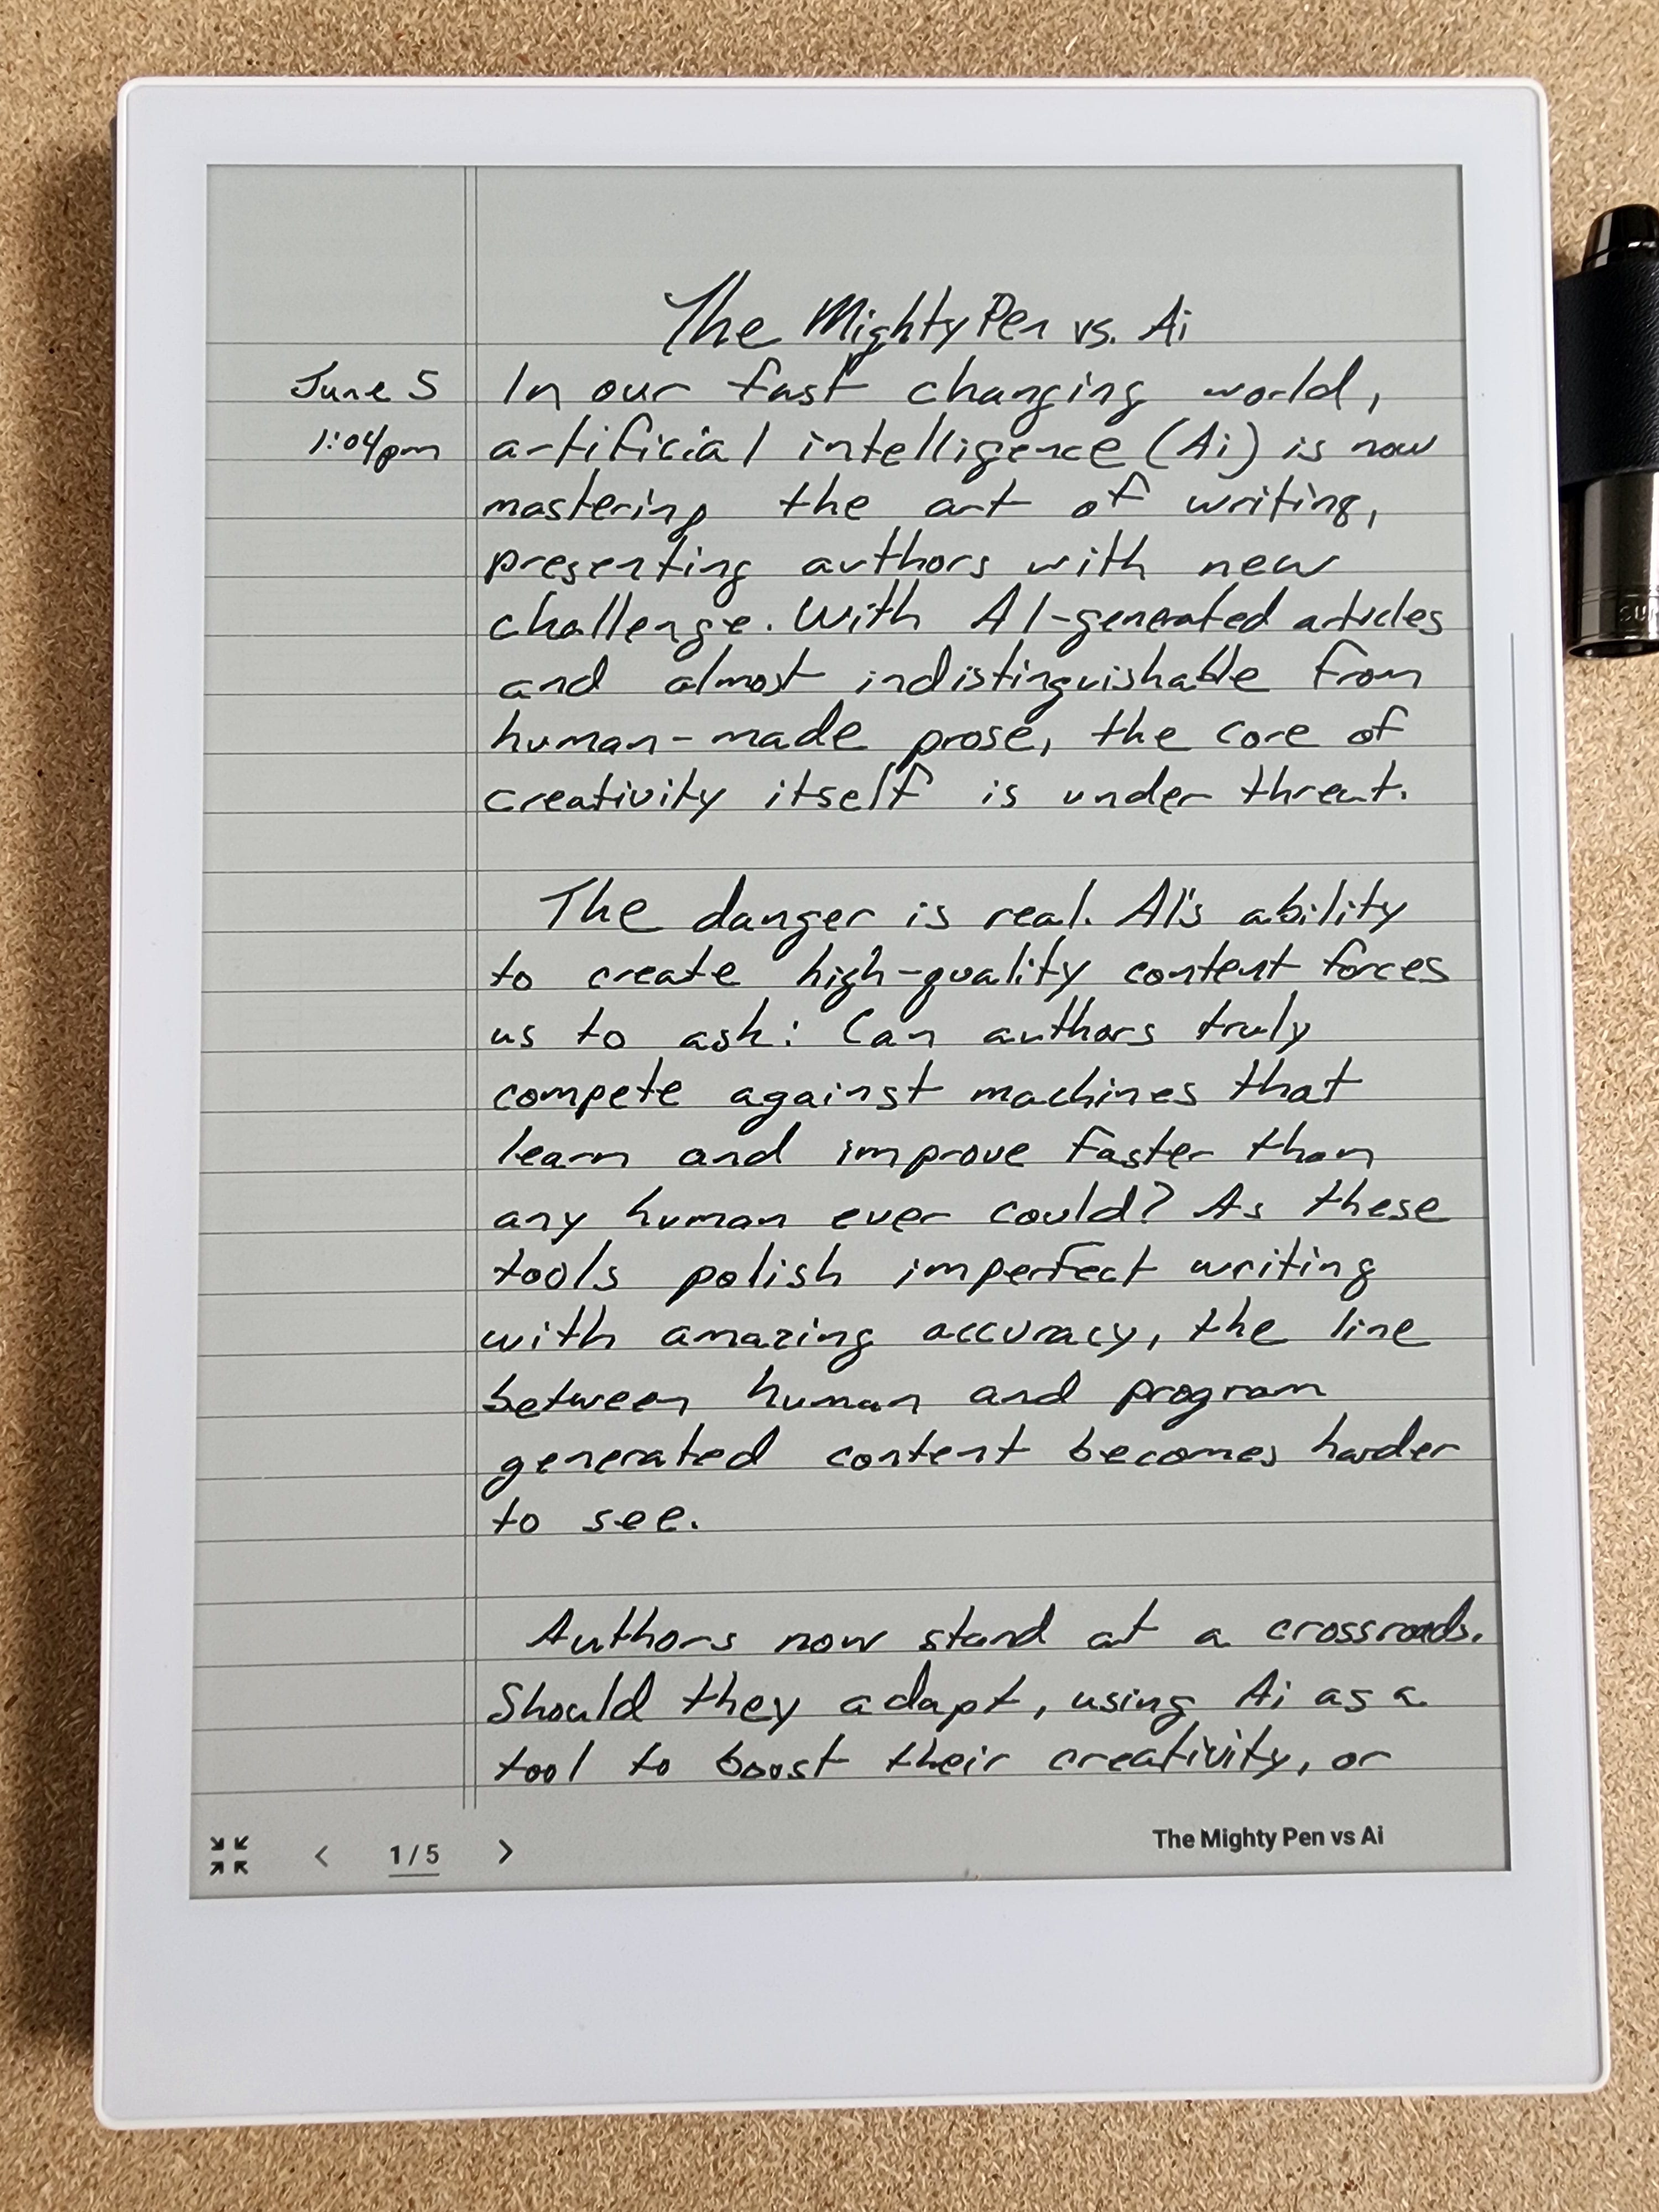 The Mighty Pen vs. Ai
June 5
In our fast changing world,
1:04pm
artificial intelligence (Ai) is now
mastering the art of writing,
presenting authors with new
challenge. With AI-generated articles
and almost indistinguishable from
human-made prose, the core of
creativity itself is under threat.
The danger is real. AI's ability
to create high-quality content forces
us to ask: Can authors truly
compete against machines that
learn and improve faster than
any human ever could? As these
tools polish imperfect writing
with amazing accuracy, the line
between human and program
generated content becomes harder
to see.
Authors now stand at a crossroads.
Should they adapt, using Ai as a
tool to boost their creativity, or
1/5
The Mighty Pen vs Ai